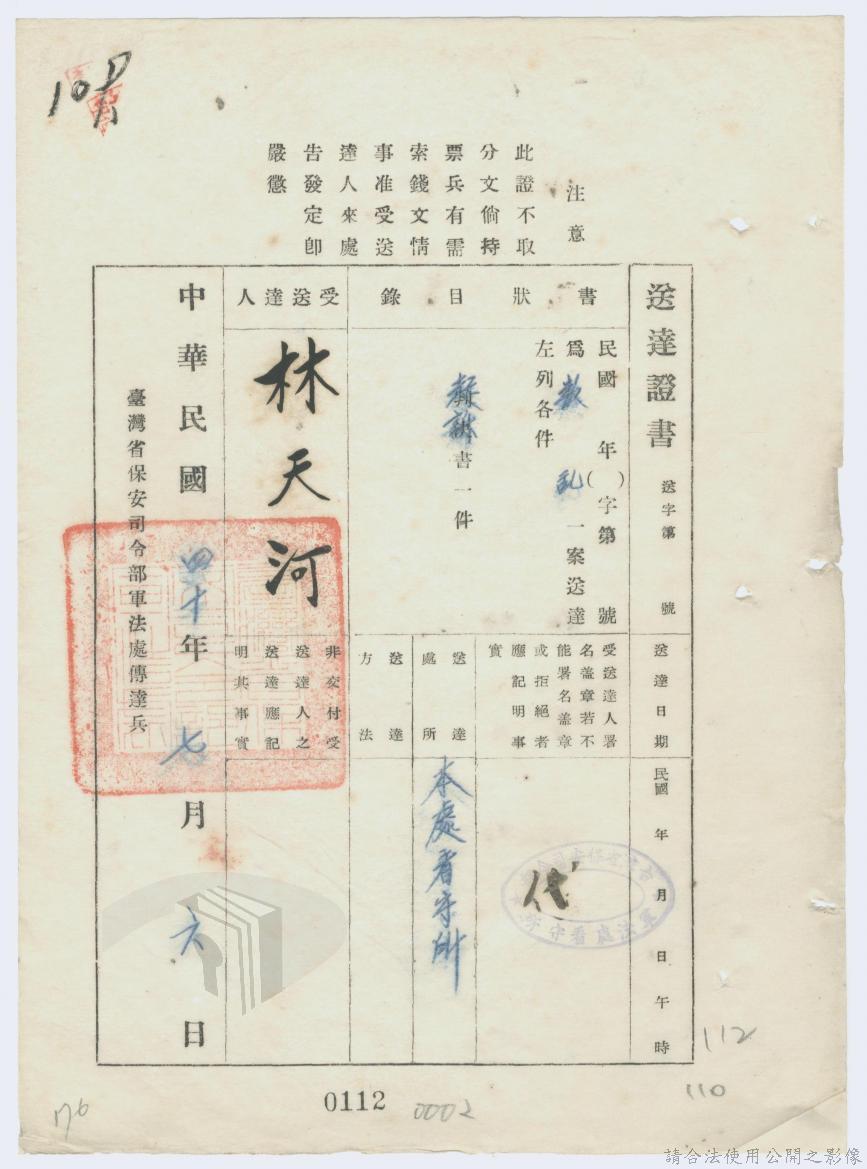 注意
此證不取
分文倘持
票兵有需
索錢文情
事准受送
達人來處
告發定卽
嚴懲
送達證書
送字第 號
書狀目錄
民國 年( )字第 號
爲叛亂一案送達
左列各件
書一件
受送達人
林天河
送達日期
民國 年 月 日午 時
受送達人署
名蓋章若不
能署名蓋章
或拒絕者
應記明事
實
代
軍法處看守所
送達
處所
本處看守所
送達
方法
非交付受
送達人之
送達應記
明其事實
中華民國四十年七月六日
臺灣省保安司令部軍法處傳達兵
0112
0002
112
110
176
請合法使用公開之影像